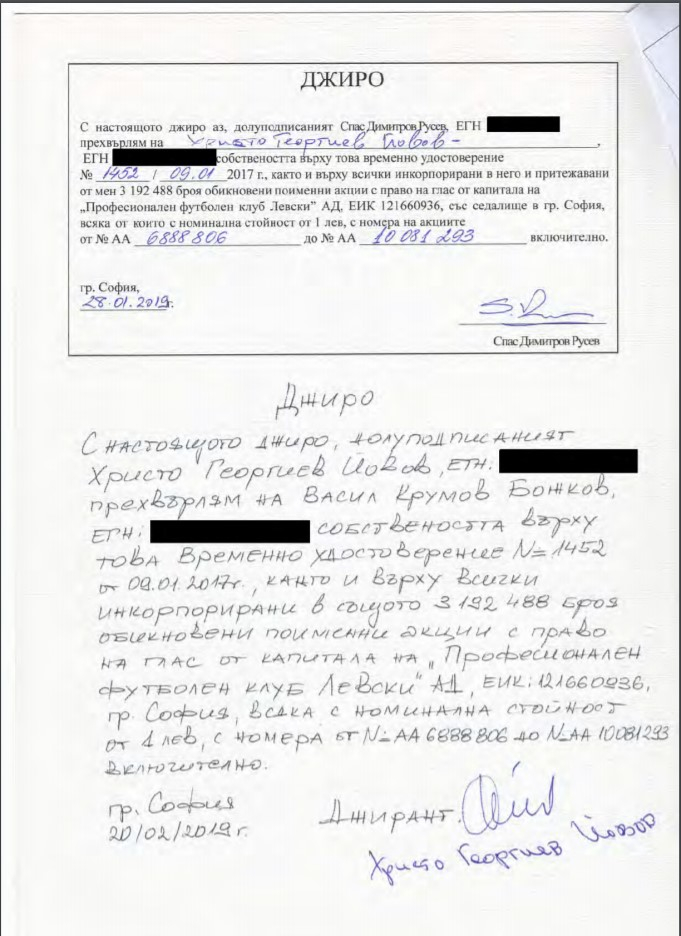 ДЖИРО
С настоящото джиро аз, долуподписаният Спас Димитров Русев, ЕГН
прехвърлям на Христо Георгиев Йовов – ,
ЕГН собствеността върху това временно удостоверение
№ 1452 / 09.01 2017 г., както и върху всички инкорпорирани в него и притежавани
от мен 3 192 488 броя обикновени поименни акции с право на глас от капитала на
„Професионален футболен клуб Левски” АД, ЕИК 121660936, със седалище в гр. София,
всяка от които с номинална стойност от 1 лев, с номера на акциите
от № АА 6888806 до № АА 10081293 включително.
гр. София,
28.01.2019г.
Спас Димитров Русев
Джиро
С настоящото джиро, долуподписаният
Христо Георгиев Йовов, ЕГН:
прехвърлям на Васил Крумов Божков,
ЕГН: собствеността върху
това Временно удостоверение N=1452
от 09.01.2017г., както и върху всички
инкорпорирани в същото 3 192 488 броя
обикновени поименни акции с право
на глас от капитала на „Професионален
футболен клуб Левски" АД, ЕИК: 121660936,
гр. София, всяка с номинална стойност
от 1 лев, с номера от N=АА 6888806 до N=АА 10081293
включително.
гр. София
20/02/2019г.
Джирант:
Христо Георгиев Йовов